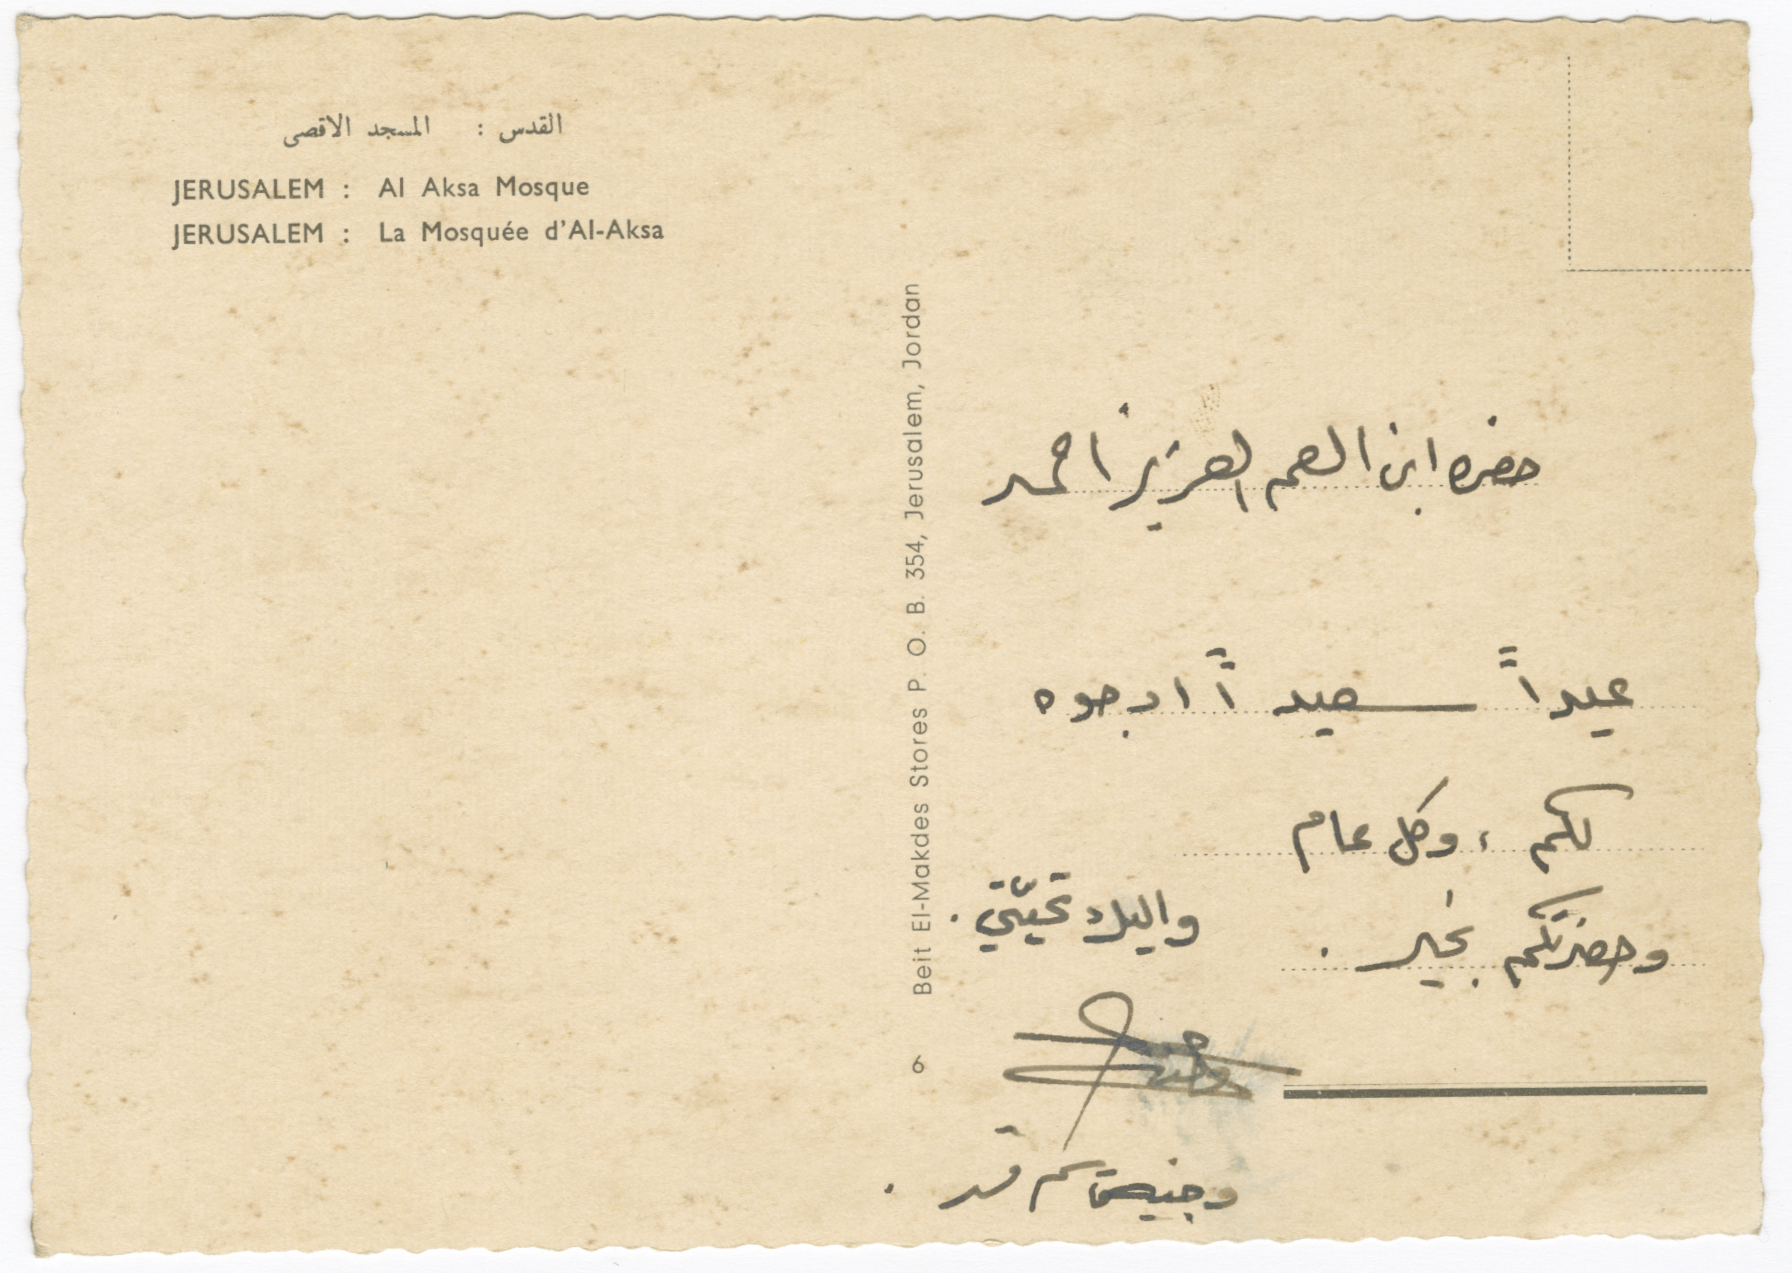 القدس : المسجد الاقصى
JERUSALEM : Al Aksa Mosque
JERUSALEM : La Mosquée d'Al-Aksa
Beit El-Makdes Stores P. O. B. 354, Jerusalem, Jordan
6
حضره ابن العم العزيز احمد
عيداً سعيداً ارجوه
لكم ، وكل عام
وحضرتكم بخير .
واليك تحيّتي .